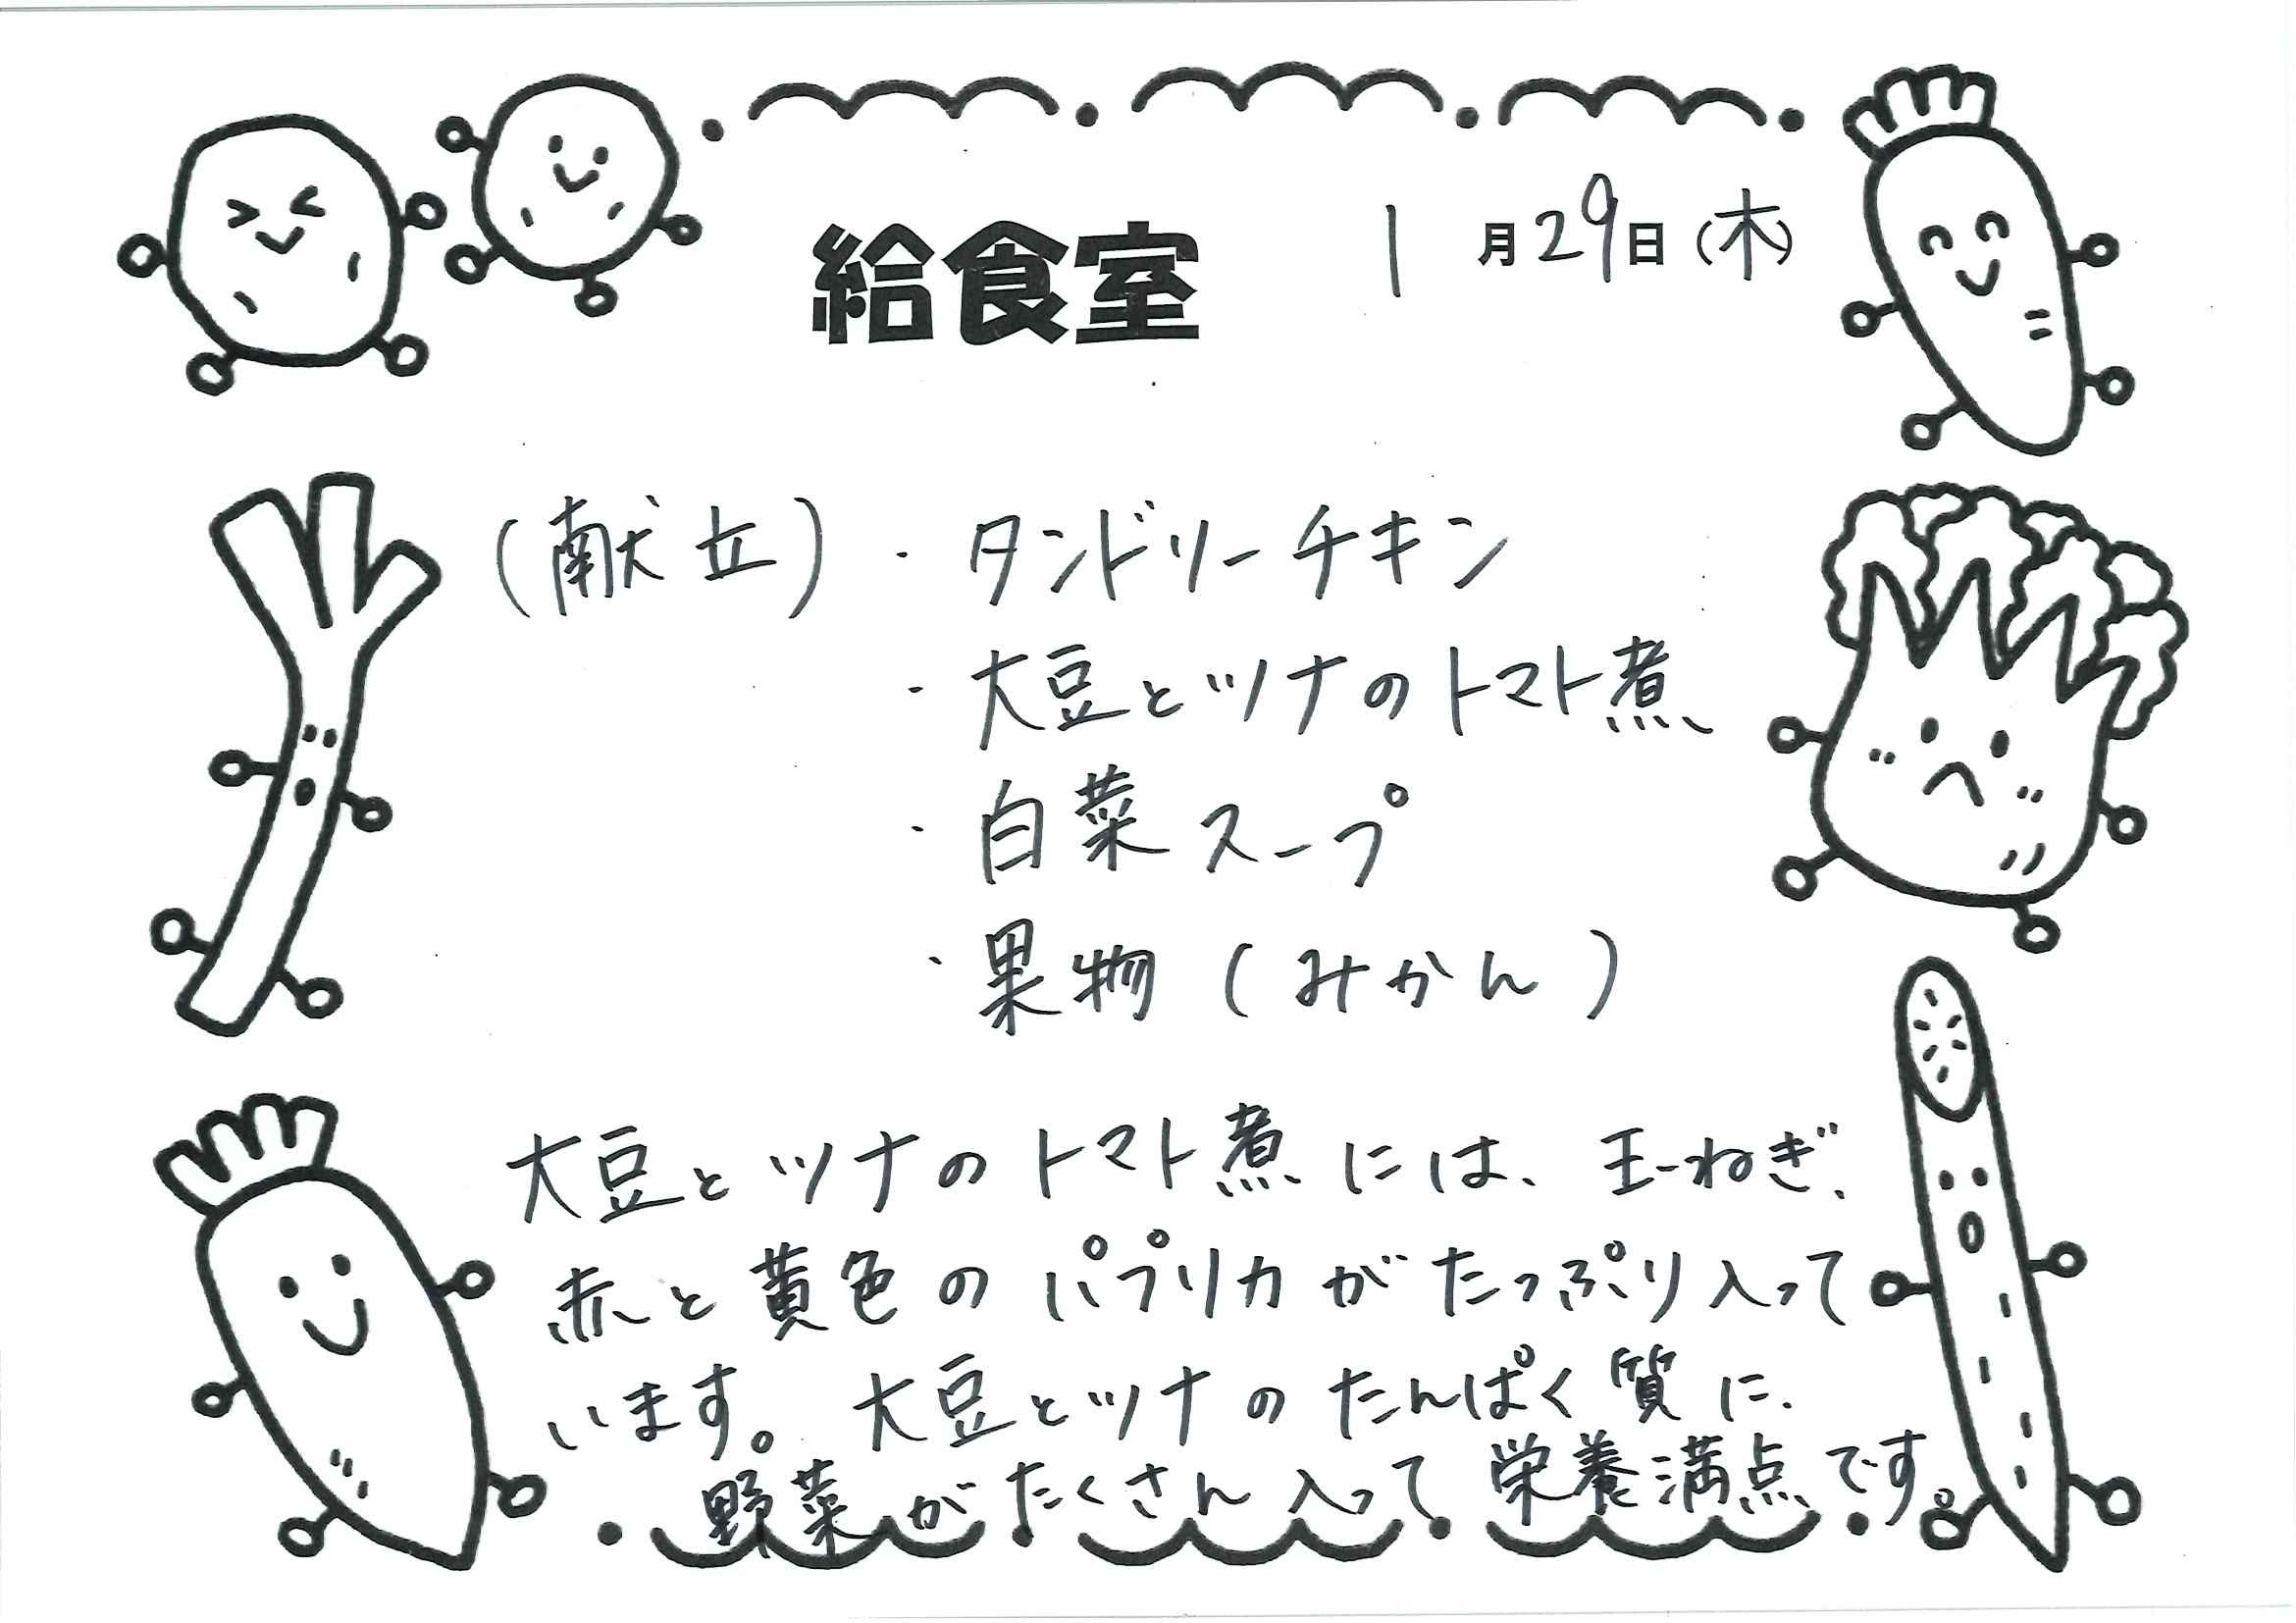 給食室 1月29日(木)
(献立)・タンドリーチキン
・大豆とツナのトマト煮
・白菜スープ
・果物(みかん)
大豆とツナのトマト煮には、玉ねぎ、
赤と黄色のパプリカがたっぷり入って
います。大豆とツナのたんぱく質に、
野菜がたくさん入って栄養満点です。